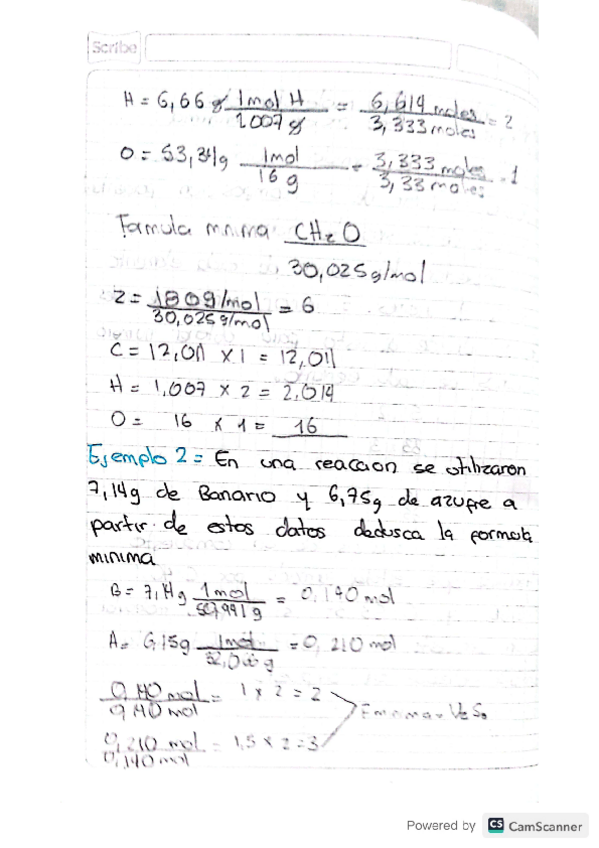 Scribe
H = 6,66 g 1mol H / 1.007 g = 6,614 moles / 3,333 moles = 2
O = 53,34g 1mol / 16 g = 3,333 moles / 3,33 moles = 1
Formula minima CH2O
30,025g/mol
Z = 180g/mol / 30,025 g/mol = 6
C = 12,011 x 1 = 12,011
H = 1,007 x 2 = 2,014
O = 16 x 1 = 16
Ejemplo 2 = En una reaccion se utilizaron
7,14g de Banario y 6,75g de azufre a
partir de estos datos dedusca la formula
minima
B = 7,14g 1mol / g = 0,140 mol
A = 6,15g 1mol / g = 0,210 mol
0,140 mol / 0,140 mol = 1 x 2 = 2
F minima = V2S3
0,210 mol / 0,140 mol = 1,5 x 2 = 3
Powered by CS CamScanner